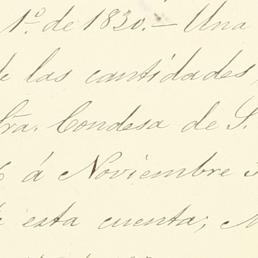 1º de 1830.— Una
de las cantidades
Sra. Condesa de S.
á Noviembre 3
esta cuenta;